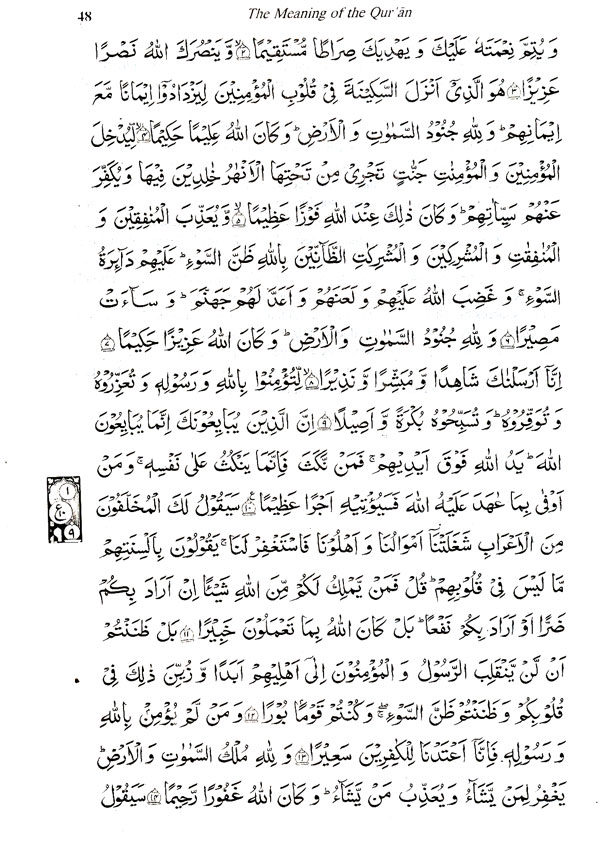 48
The Meaning of the Qur'ān
وَيُتِمَّ نِعْمَتَهٗ عَلَيْكَ وَ يَهْدِيَكَ صِرَاطًا مُّسْتَقِيْمًا ۙ﴿۲﴾ وَّ يَنْصُرَكَ اللّٰهُ نَصْرًا
عَزِيْزًا ﴿۳﴾ هُوَ الَّذِيْۤ اَنْزَلَ السَّكِيْنَةَ فِيْ قُلُوْبِ الْمُؤْمِنِيْنَ لِيَزْدَادُوْۤا اِيْمَانًا مَّعَ
اِيْمَانِهِمْ ؕ وَ لِلّٰهِ جُنُوْدُ السَّمٰوٰتِ وَ الْاَرْضِ ؕ وَ كَانَ اللّٰهُ عَلِيْمًا حَكِيْمًا ۙ﴿۴﴾ لِّيُدْخِلَ
الْمُؤْمِنِيْنَ وَ الْمُؤْمِنٰتِ جَنّٰتٍ تَجْرِيْ مِنْ تَحْتِهَا الْاَنْهٰرُ خٰلِدِيْنَ فِيْهَا وَ يُكَفِّرَ
عَنْهُمْ سَيِّاٰتِهِمْ ؕ وَ كَانَ ذٰلِكَ عِنْدَ اللّٰهِ فَوْزًا عَظِيْمًا ۙ﴿۵﴾ وَّ يُعَذِّبَ الْمُنٰفِقِيْنَ وَ
الْمُنٰفِقٰتِ وَ الْمُشْرِكِيْنَ وَ الْمُشْرِكٰتِ الظَّآنِّيْنَ بِاللّٰهِ ظَنَّ السَّوْءِ ؕ عَلَيْهِمْ دَآىِٕرَةُ
السَّوْءِ ۚ وَ غَضِبَ اللّٰهُ عَلَيْهِمْ وَ لَعَنَهُمْ وَ اَعَدَّ لَهُمْ جَهَنَّمَ ؕ وَ سَآءَتْ
مَصِيْرًا ﴿۶﴾ وَ لِلّٰهِ جُنُوْدُ السَّمٰوٰتِ وَ الْاَرْضِ ؕ وَ كَانَ اللّٰهُ عَزِيْزًا حَكِيْمًا ﴿۷﴾
اِنَّاۤ اَرْسَلْنٰكَ شَاهِدًا وَّ مُبَشِّرًا وَّ نَذِيْرًا ۙ﴿۸﴾ لِّتُؤْمِنُوْا بِاللّٰهِ وَ رَسُوْلِهٖ وَ تُعَزِّرُوْهُ
وَ تُوَقِّرُوْهُ ؕ وَ تُسَبِّحُوْهُ بُكْرَةً وَّ اَصِيْلًا ﴿۹﴾ اِنَّ الَّذِيْنَ يُبَايِعُوْنَكَ اِنَّمَا يُبَايِعُوْنَ
اللّٰهَ ؕ يَدُ اللّٰهِ فَوْقَ اَيْدِيْهِمْ ۚ فَمَنْ نَّكَثَ فَاِنَّمَا يَنْكُثُ عَلٰى نَفْسِهٖ ۚ وَ مَنْ
اَوْفٰى بِمَا عٰهَدَ عَلَيْهُ اللّٰهَ فَسَيُؤْتِيْهِ اَجْرًا عَظِيْمًا ﴿۱۰﴾ سَيَقُوْلُ لَكَ الْمُخَلَّفُوْنَ
۱
ع
۱۰
۹
مِنَ الْاَعْرَابِ شَغَلَتْنَاۤ اَمْوَالُنَا وَ اَهْلُوْنَا فَاسْتَغْفِرْ لَنَا ۚ يَقُوْلُوْنَ بِاَلْسِنَتِهِمْ
مَّا لَيْسَ فِيْ قُلُوْبِهِمْ ؕ قُلْ فَمَنْ يَّمْلِكُ لَكُمْ مِّنَ اللّٰهِ شَيْـًٔا اِنْ اَرَادَ بِكُمْ
ضَرًّا اَوْ اَرَادَ بِكُمْ نَفْعًا ؕ بَلْ كَانَ اللّٰهُ بِمَا تَعْمَلُوْنَ خَبِيْرًا ﴿۱۱﴾ بَلْ ظَنَنْتُمْ
اَنْ لَّنْ يَّنْقَلِبَ الرَّسُوْلُ وَ الْمُؤْمِنُوْنَ اِلٰۤى اَهْلِيْهِمْ اَبَدًا وَّ زُيِّنَ ذٰلِكَ فِيْ
قُلُوْبِكُمْ وَ ظَنَنْتُمْ ظَنَّ السَّوْءِ ۖۚ وَ كُنْتُمْ قَوْمًۢا بُوْرًا ﴿۱۲﴾ وَ مَنْ لَّمْ يُؤْمِنْۢ بِاللّٰهِ
وَ رَسُوْلِهٖ فَاِنَّاۤ اَعْتَدْنَا لِلْكٰفِرِيْنَ سَعِيْرًا ﴿۱۳﴾ وَ لِلّٰهِ مُلْكُ السَّمٰوٰتِ وَ الْاَرْضِ ؕ
يَغْفِرُ لِمَنْ يَّشَآءُ وَ يُعَذِّبُ مَنْ يَّشَآءُ ؕ وَ كَانَ اللّٰهُ غَفُوْرًا رَّحِيْمًا ﴿۱۴﴾ سَيَقُوْلُ